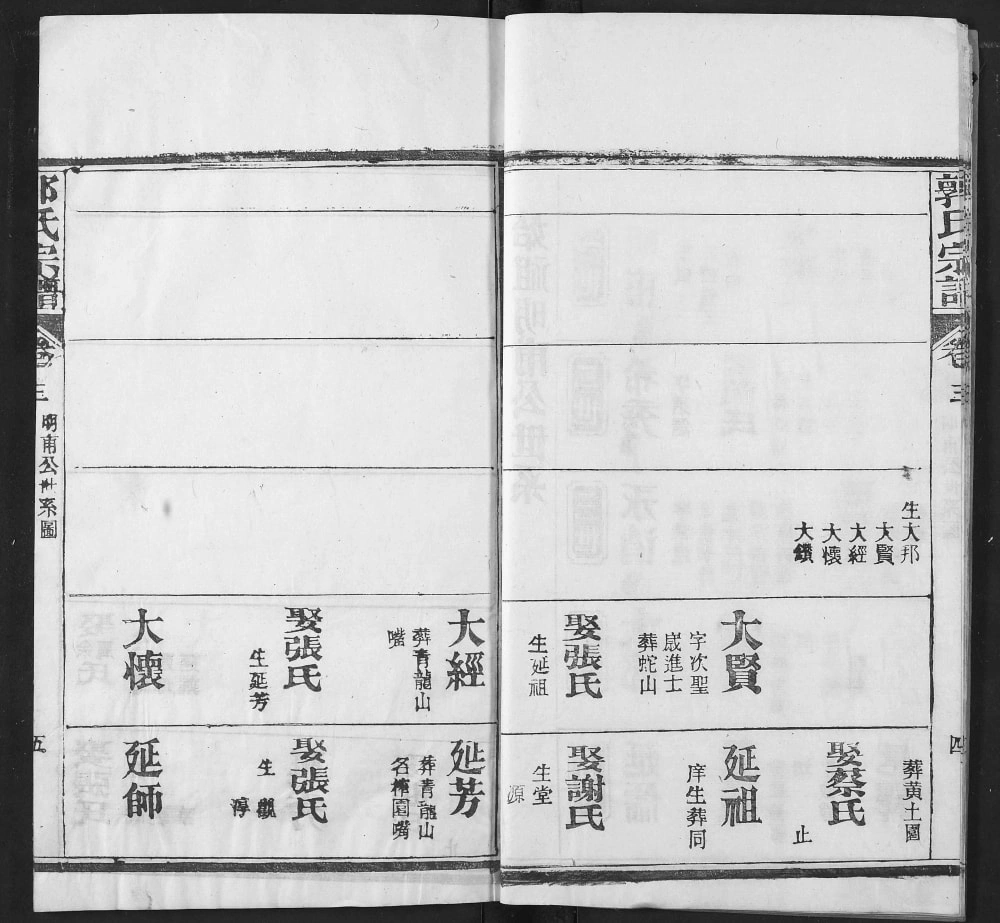 郭氏宗譜
卷三
四
生大邦
大賢
大經
大懷
大鑽
大賢
字次聖
歲進士
葬蛇山
娶張氏
生延祖
葬黃土圖
娶蔡氏
止
延祖
庠生葬同
娶謝氏
生堂
源
郭氏宗譜
卷三
明甫公世系圖
五
大經
葬青龍山
嘴
娶張氏
生延芳
大懷
延芳
葬青龍山
名榨園嘴
娶張氏
生
淳
延師